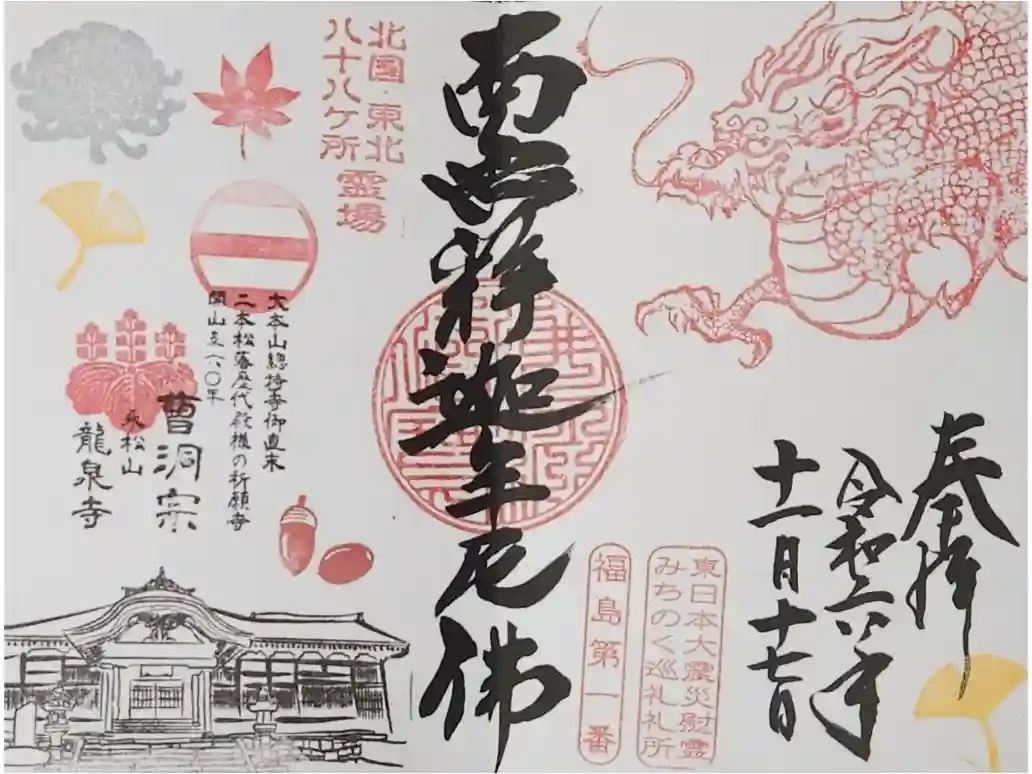 奉拝
令和六年
十一月十七日
東日本大震災慰霊
みちのく巡礼札所
福島第一番
南無釈迦牟尼佛
北国・東北
八十八ケ所
霊場
大本山總持寺御直末
二本松藩歴代殿様の祈願寺
開山六〇〇年
曹洞宗
永松山
龍泉寺